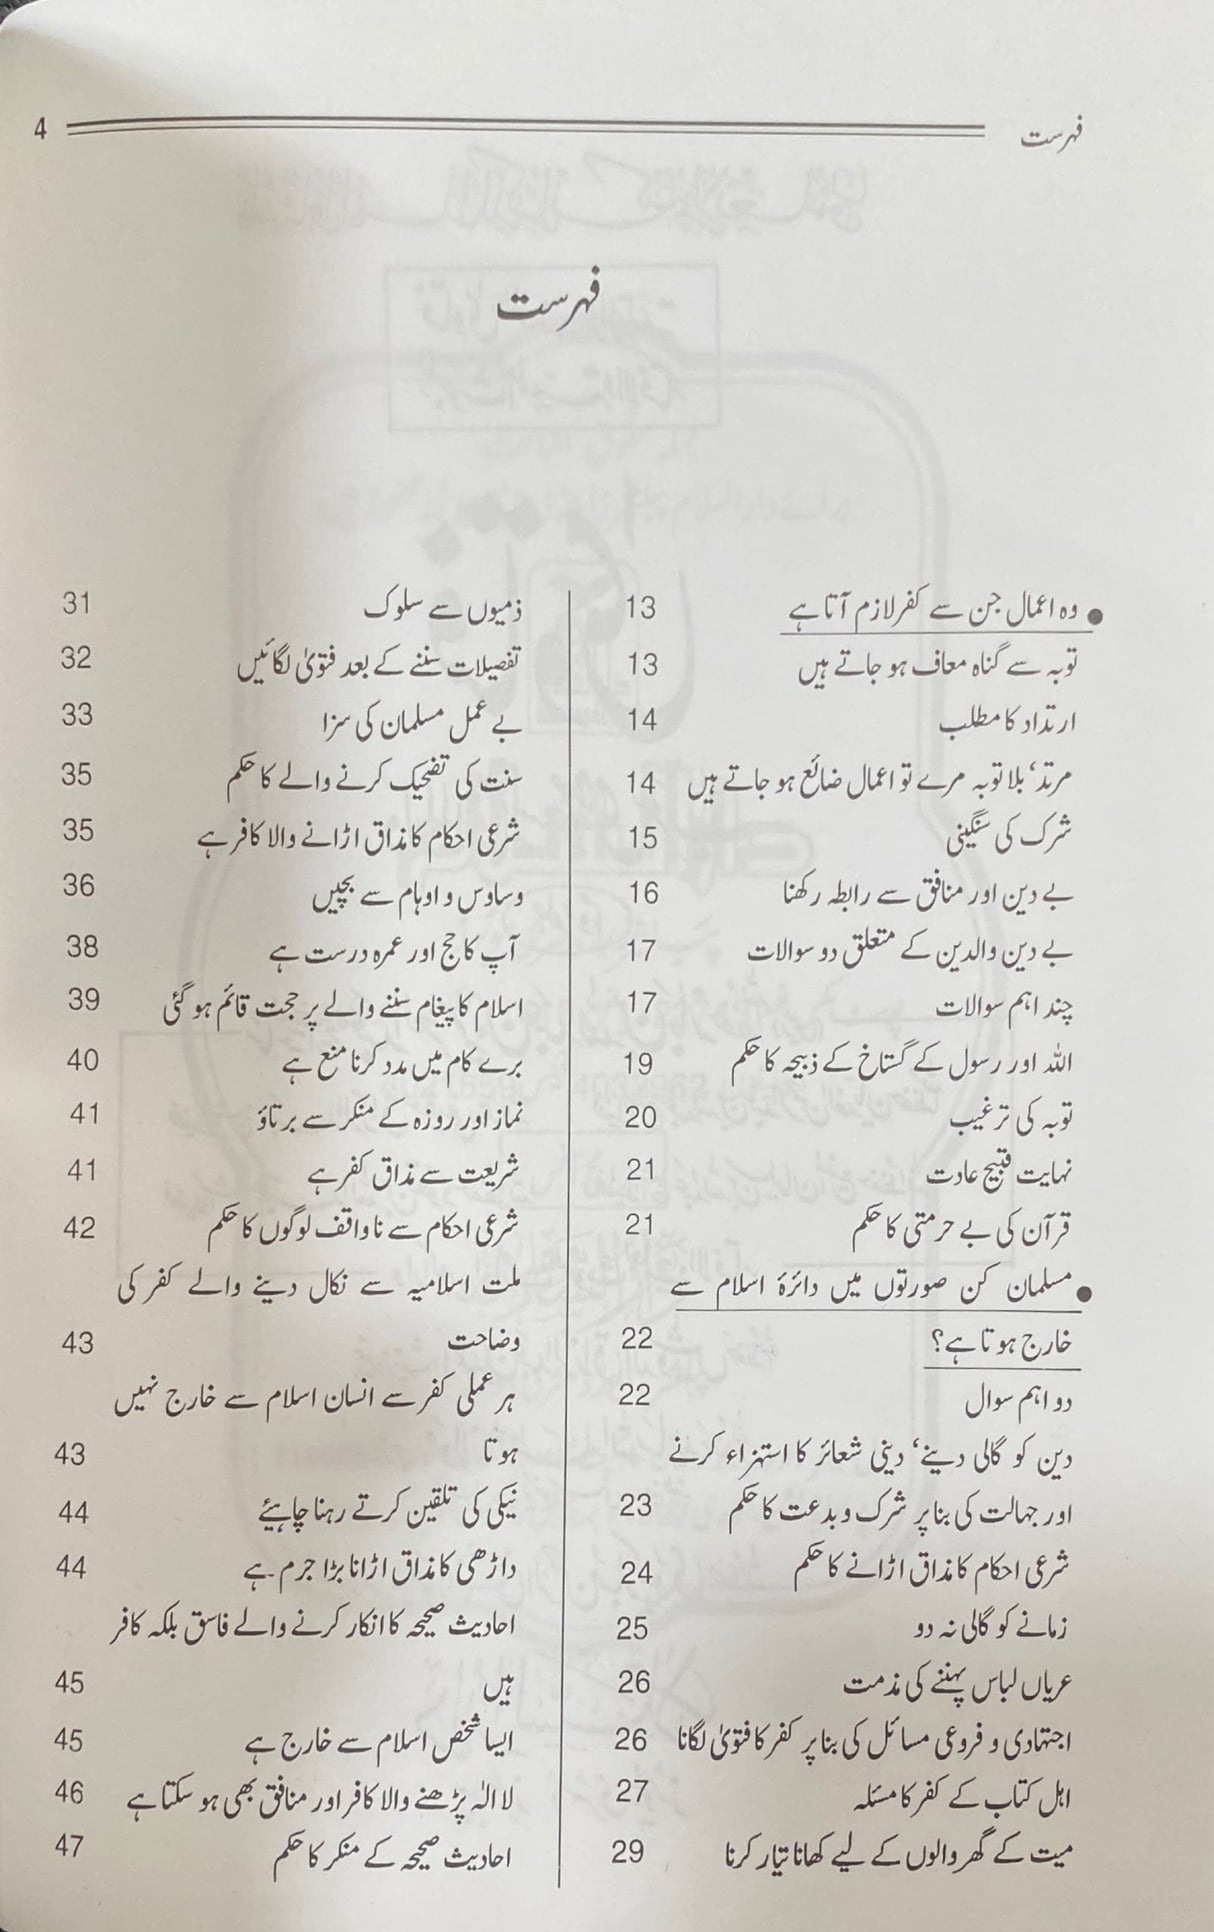 فہرست
4
فہرست
● وہ اعمال جن سے کفر لازم آتا ہے 13
توبہ سے گناہ معاف ہو جاتے ہیں 13
ارتداد کا مطلب 14
مرتد، بلا توبہ مرے تو اعمال ضائع ہو جاتے ہیں 14
شرک کی سنگینی 15
بے دین اور منافق سے رابطہ رکھنا 16
بے دین والدین کے متعلق دو سوالات 17
چند اہم سوالات 17
اللہ اور رسول کے گستاخ کے ذبیحہ کا حکم 19
توبہ کی ترغیب 20
نہایت قبیح عادت 21
قرآن کی بے حرمتی کا حکم 21
● مسلمان کن صورتوں میں دائرۂ اسلام سے
خارج ہوتا ہے؟ 22
دو اہم سوال 22
دین کو گالی دینے، دینی شعائر کا استہزاء کرنے
اور جہالت کی بنا پر شرک و بدعت کا حکم 23
شرعی احکام کا مذاق اڑانے کا حکم 24
زمانے کو گالی نہ دو 25
عریاں لباس پہننے کی مذمت 26
اجتہادی و فروعی مسائل کی بنا پر کفر کا فتویٰ لگانا 26
اہل کتاب کے کفر کا مسئلہ 27
میت کے گھر والوں کے لیے کھانا تیار کرنا 29
ذمیوں سے سلوک 31
تفصیلات سننے کے بعد فتویٰ لگائیں 32
بے عمل مسلمان کی سزا 33
سنت کی تضحیک کرنے والے کا حکم 35
شرعی احکام کا مذاق اڑانے والا کافر ہے 35
وساوس و اوہام سے بچیں 36
آپ کا حج اور عمرہ درست ہے 38
اسلام کا پیغام سننے والے پر حجت قائم ہو گئی 39
برے کام میں مدد کرنا منع ہے 40
نماز اور روزہ کے منکر سے برتاؤ 41
شریعت سے مذاق کفر ہے 41
شرعی احکام سے ناواقف لوگوں کا حکم 42
ملت اسلامیہ سے نکال دینے والے کفر کی
وضاحت 43
ہر عملی کفر سے انسان اسلام سے خارج نہیں
ہوتا 43
نیکی کی تلقین کرتے رہنا چاہیئے 44
داڑھی کا مذاق اڑانا بڑا جرم ہے 44
احادیث صحیحہ کا انکار کرنے والے فاسق بلکہ کافر
ہیں 45
ایسا شخص اسلام سے خارج ہے 45
لا الٰہ پڑھنے والا کافر اور منافق بھی ہو سکتا ہے 46
احادیث صحیحہ کے منکر کا حکم 47